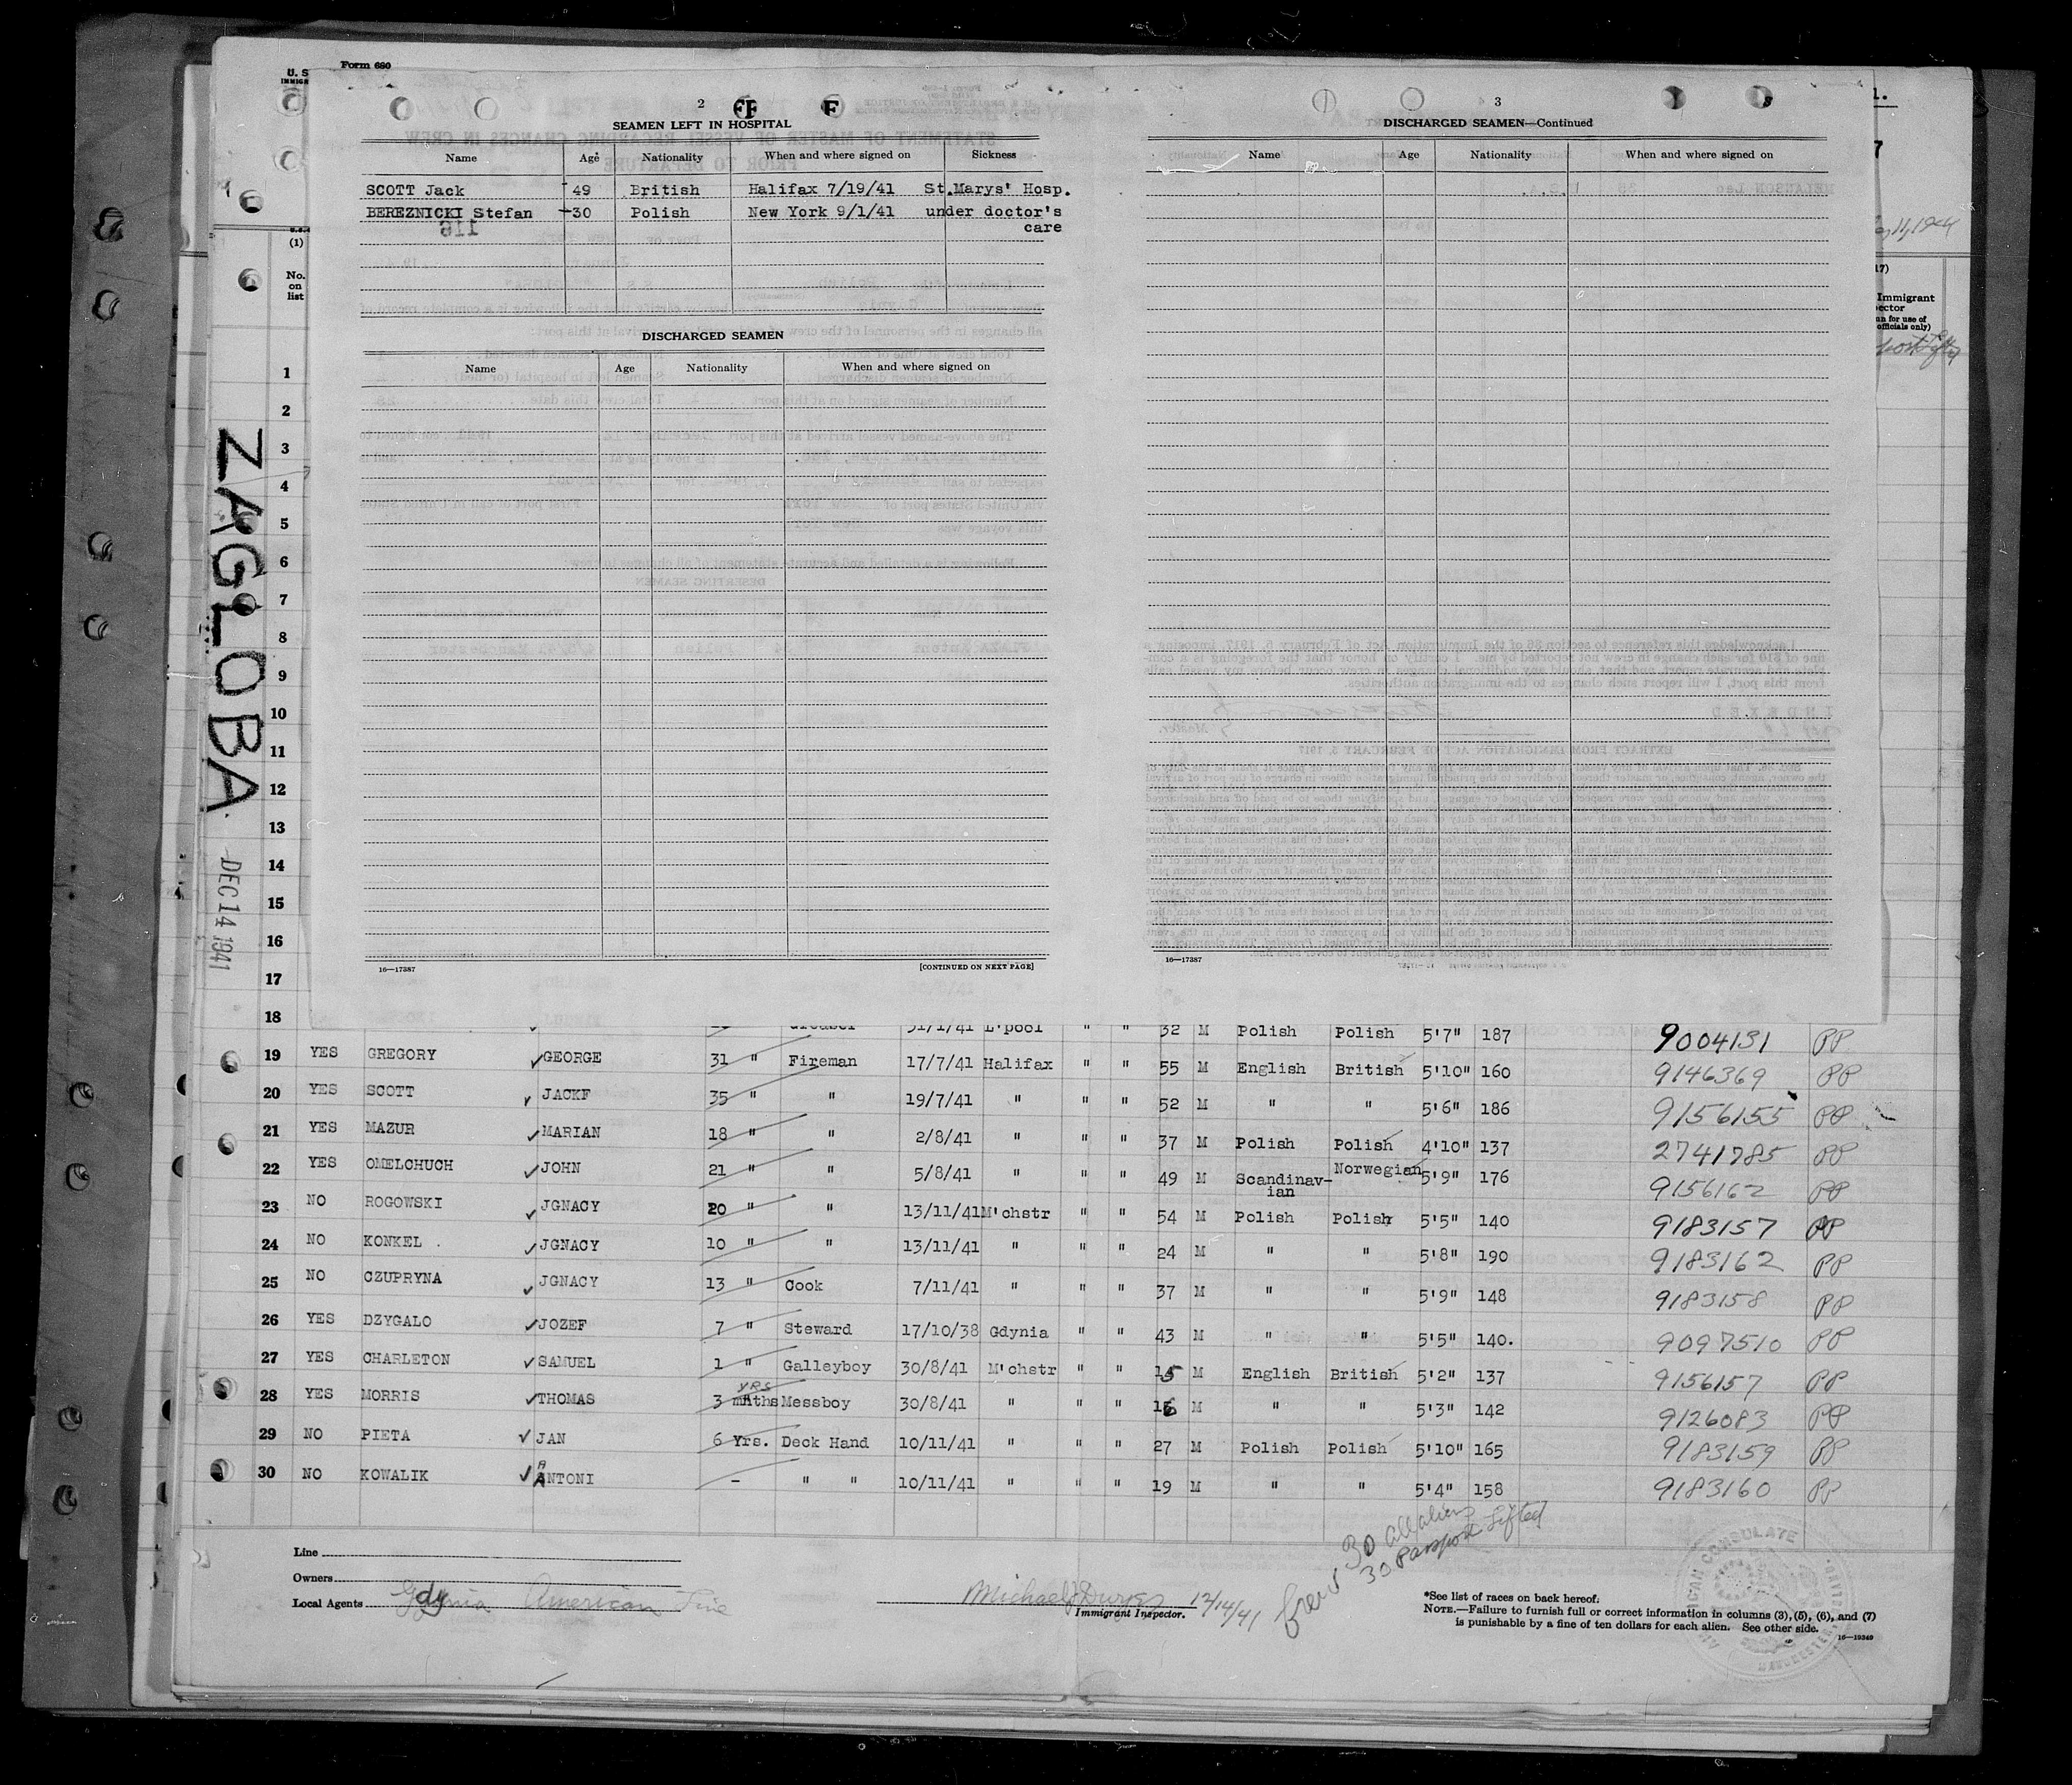 Form 680
U. S
IMMIGR
2
SEAMEN LEFT IN HOSPITAL
Name Age Nationality When and where signed on Sickness
SCOTT Jack 49 British Halifax 7/19/41 St.Marys' Hosp.
BEREZNICKI Stefan 30 Polish New York 9/1/41 under doctor's
care
DISCHARGED SEAMEN
Name Age Nationality When and where signed on
16—17387 [CONTINUED ON NEXT PAGE]
3
DISCHARGED SEAMEN—Continued
Name Age Nationality When and where signed on
16—17387
Immigrant
ector
n for use of
officials only)
(1)
No.
on
list
1
2
3
4
5
6
7
8
9
10
11
12
13
14
15
16
17
ZAGLOBA
DEC 14 1941
18 Greaser 31/1/41 L'pool " " 32 M Polish Polish 5'7" 187 9004131 PP
19 YES GREGORY GEORGE 31 " Fireman 17/7/41 Halifax " " 55 M English British 5'10" 160 9146369 PP
20 YES SCOTT JACKF 35 " " 19/7/41 " " " 52 M " " 5'6" 186 9156155 PP
21 YES MAZUR MARIAN 18 " " 2/8/41 " " " 37 M Polish Polish 4'10" 137 2741785 PP
22 YES OMELCHUCH JOHN 21 " " 5/8/41 " " " 49 M Scandinav-ian Norwegian 5'9" 176 9156162 PP
23 NO ROGOWSKI JGNACY 20 " " 13/11/41 M'chstr " " 54 M Polish Polish 5'5" 140 9183157 PP
24 NO KONKEL JGNACY 10 " " 13/11/41 " " " 24 M " " 5'8" 190 9183162 PP
25 NO CZUPRYNA JGNACY 13 " Cook 7/11/41 " " " 37 M " " 5'9" 148 9183158 PP
26 YES DZYGALO JOZEF 7 " Steward 17/10/38 Gdynia " " 43 M " " 5'5" 140. 9097510 PP
27 YES CHARLETON SAMUEL 1 " Galleyboy 30/8/41 M'chstr " " 15 M English British 5'2" 137 9156157 PP
28 YES MORRIS THOMAS 3 yrs mnths Messboy 30/8/41 " " " 16 M " " 5'3" 142 9126083 PP
29 NO PIETA JAN 6 Yrs. Deck Hand 10/11/41 " " " 27 M Polish Polish 5'10" 165 9183159 PP
30 NO KOWALIK ANTONI - " " 10/11/41 " " " 19 M " " 5'4" 158 9183160 PP
Line
Owners
Local Agents Gdynia American Line
Immigrant Inspector. 12/14/41
Crew 30 all aliens
30 Passport Lifted
*See list of races on back hereof.
NOTE.—Failure to furnish full or correct information in columns (3), (5), (6), and (7)
is punishable by a fine of ten dollars for each alien. See other side.
16—19349